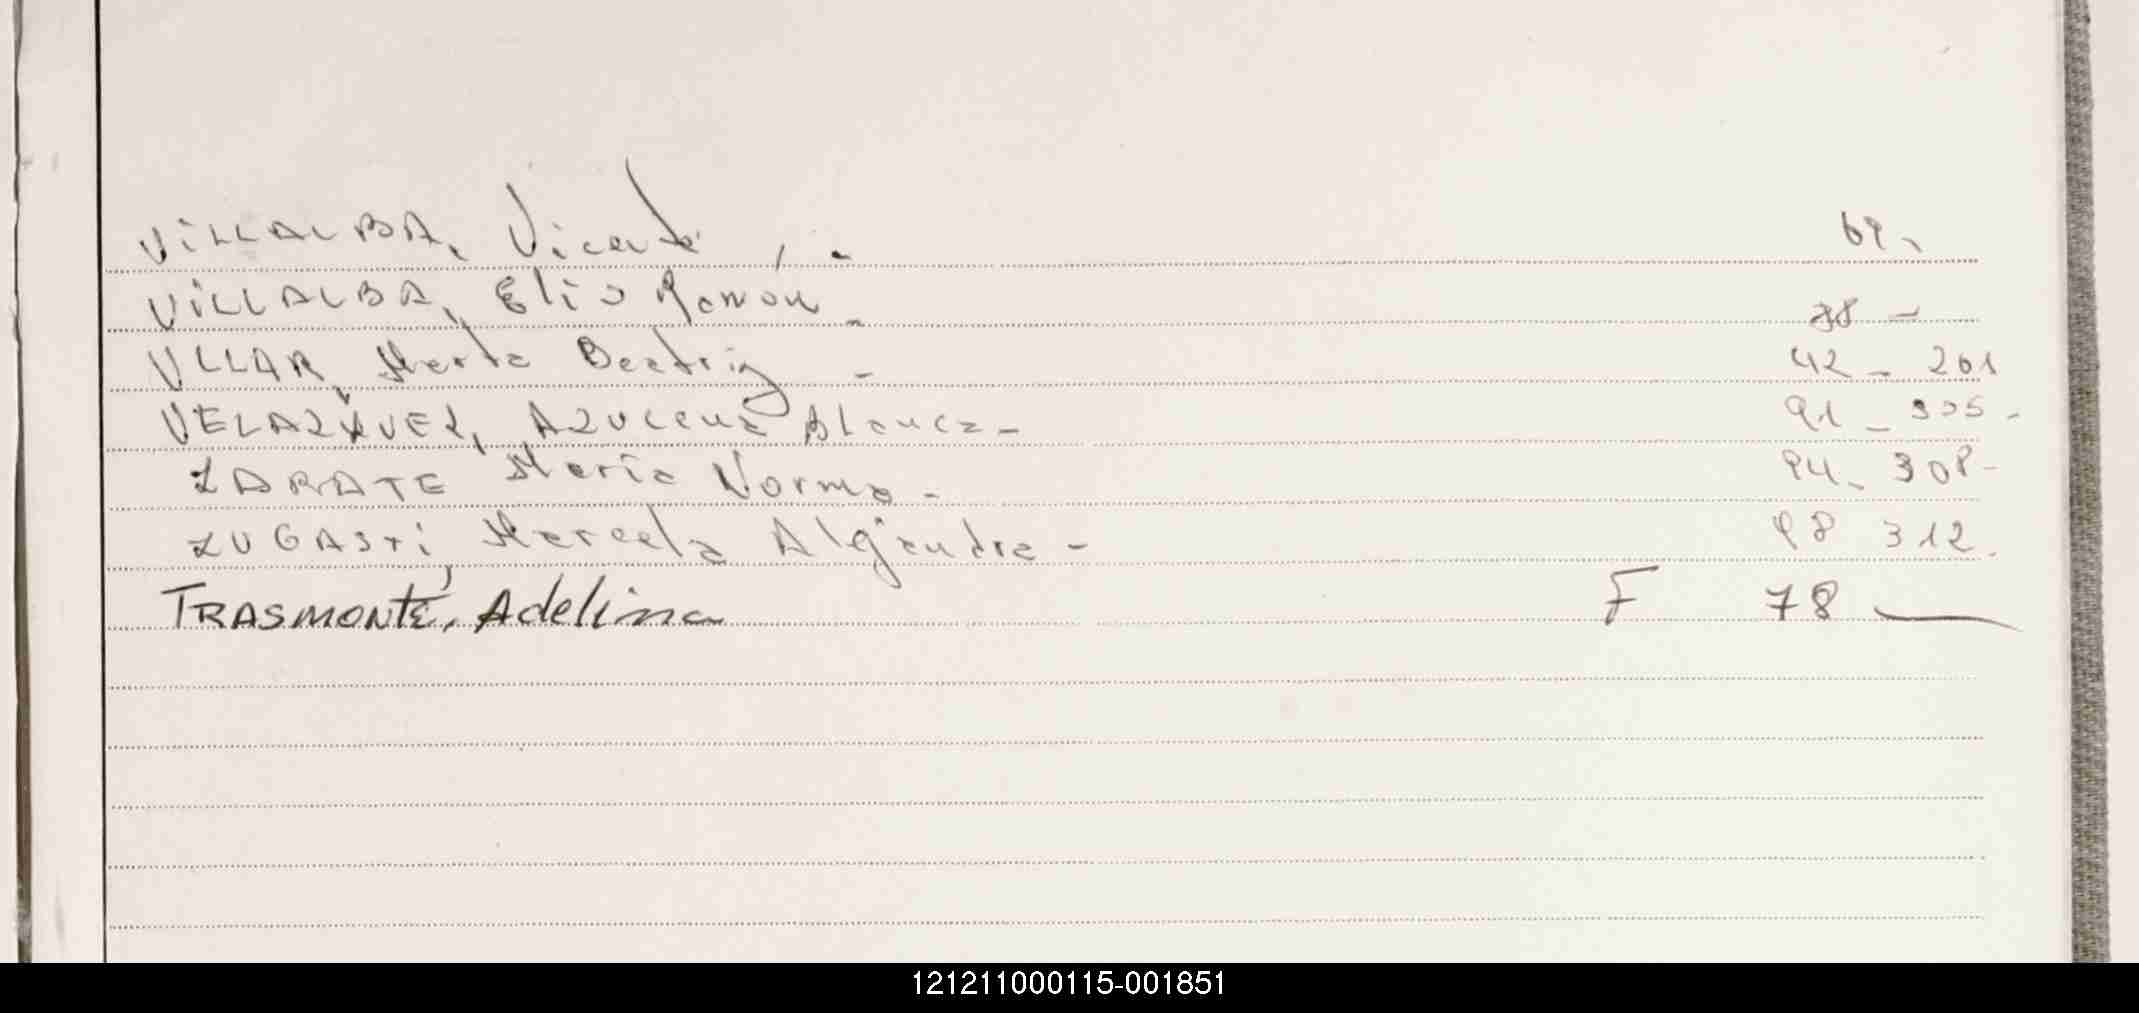 VILLALBA, Vicente , - 69 -
VILLALBA, Elio Ramón - 78 -
VLLAR, Marta Beatriz - 42 - 201
VELAZQUEZ, Azucena Blanca - 91 - 305 -
ZARATE Maria Norma - 94 - 308 -
ZUGASTI, Marcela Alejandra - 98 312.
TRASMONTE, Adelina F 78 —
121211000115-001851